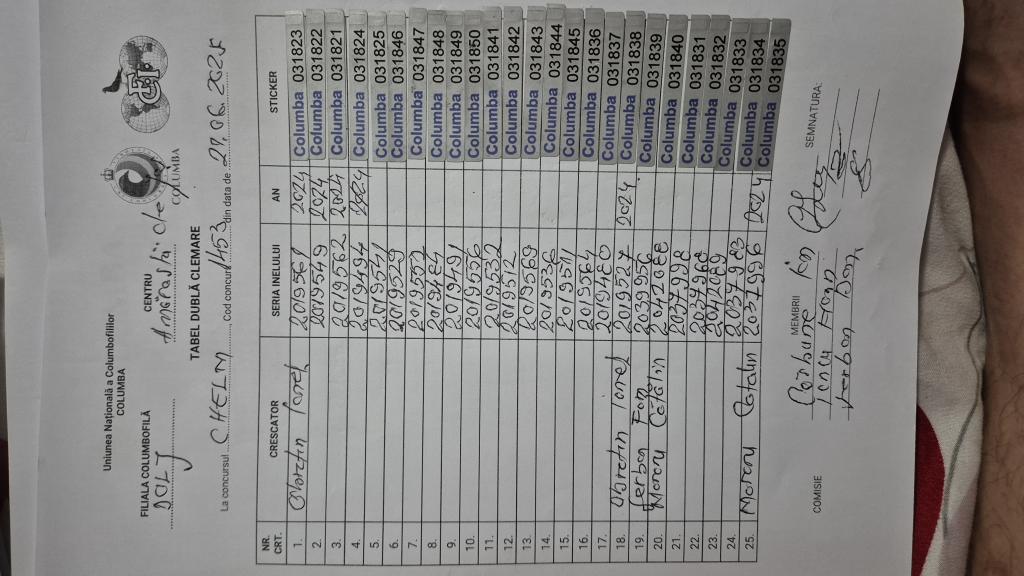 Uniunea Națională a Columbofililor
COLUMBA
FILIALA COLUMBOFILĂ
DOLJ
CENTRU
Amărăștii de
COLUMBA
TABEL DUBLĂ CLEMARE
La concursul CHELM, Cod concurs 1453 din data de 27.06.2025
NR. CRT. CRESCATOR SERIA INELULUI AN STICKER
1. Ionel 2019561 2024 Columba 031823
2. 2019549 2024 Columba 031822
3. 2019562 2024 Columba 031821
4. 2019494 2024 Columba 031824
5. 2019541 Columba 031825
6. 2019529 Columba 031846
7. 2019553 Columba 031847
8. 2019484 Columba 031848
9. 2019491 Columba 031849
10. 2019556 Columba 031850
11. 2019532 Columba 031841
12. 2019512 Columba 031842
13. 2019569 Columba 031843
14. 2019536 Columba 031844
15. 2019511 Columba 031845
16. 2019564 Columba 031836
17. 2019480 Columba 031837
18. Ionel 2019527 2024 Columba 031838
19. 2039956 Columba 031839
20. Mororu Cătălin 2042088 Columba 031840
21. 2037998 Columba 031831
22. 2037968 Columba 031832
23. 2042089 Columba 031833
24. 2037983 Columba 031834
25. Mororu Catalin 2037996 2024 Columba 031835
COMISIE
MEMBRII
SEMNATURA: